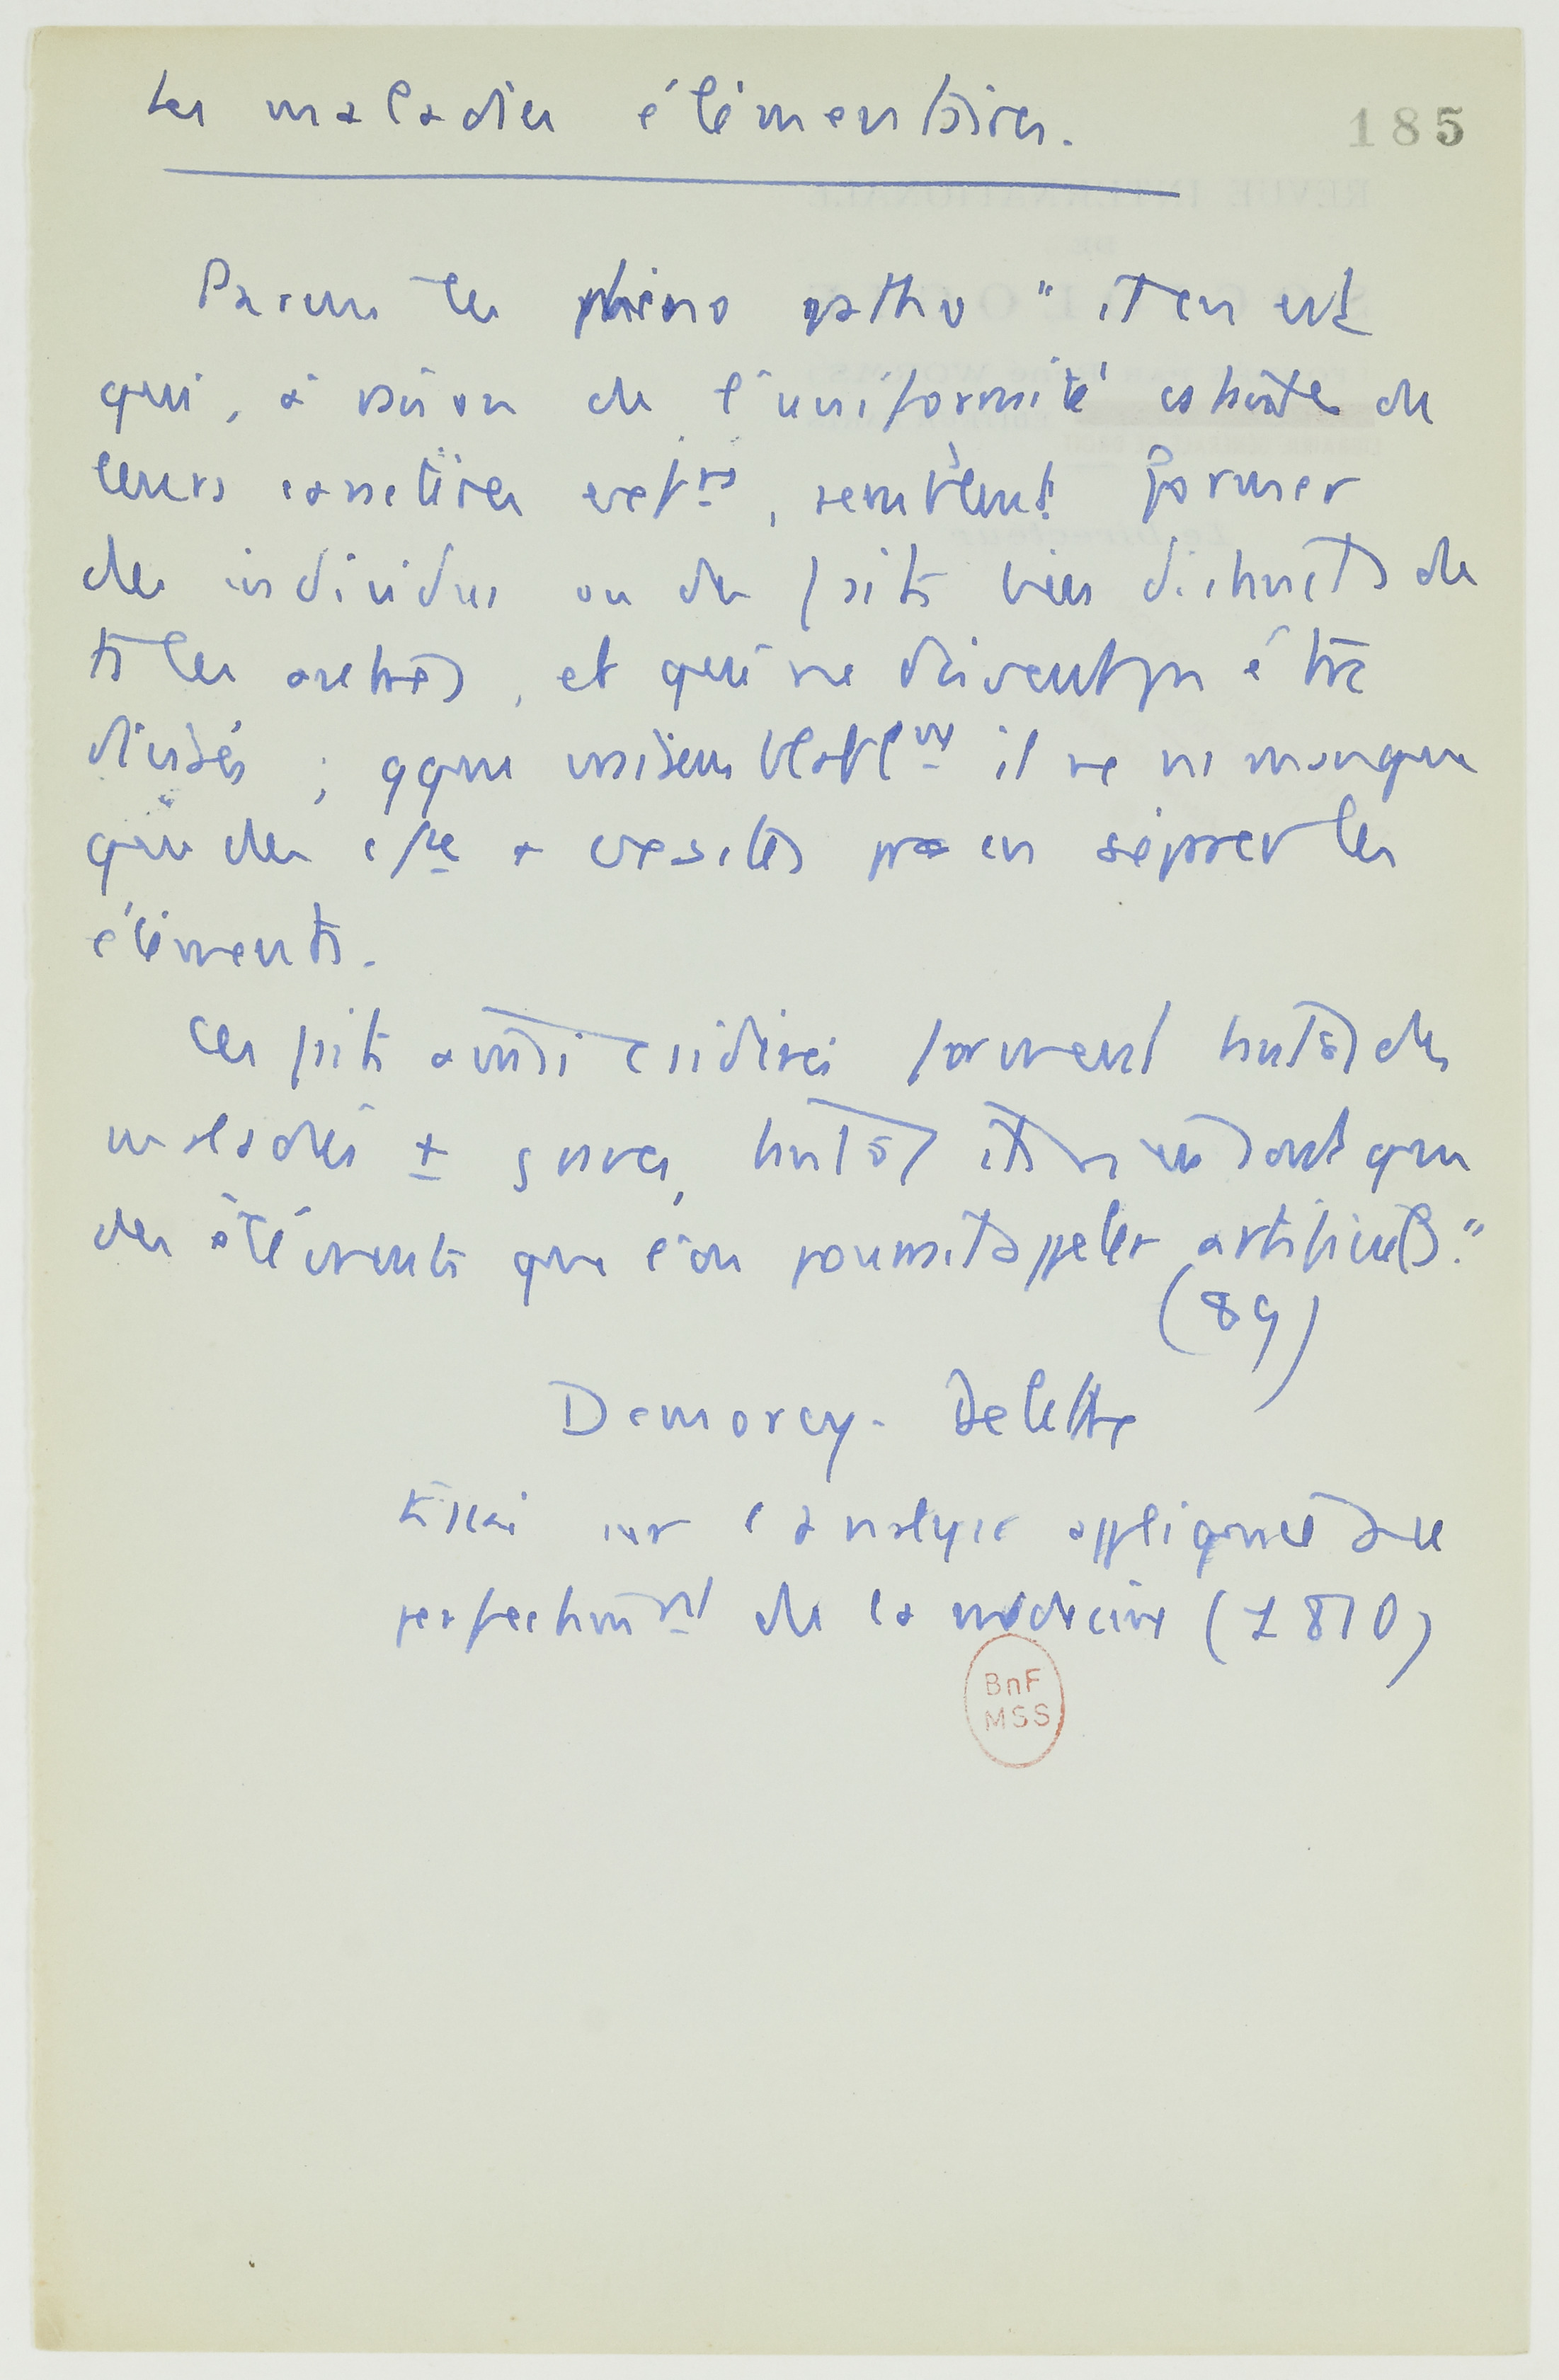 Les maladies élémentaires.
185
Parmi les phéno patho " il en est
qui, à raison de l'uniformité constante de
leurs caractères , semblent former
des individus ou des faits bien distincts de
ts les autres, et qui ne doivent pas être
divisés ; qque vraisemblablmt il ne ns manque
que des pr en séparer les
éléments.
Ces faits ainsi considérés forment tantôt des
maladies ± graves, tantôt ils ne st que
des éléments que l'on pourrait appeler artificiels."
(89)
Demorcy-Delettre
Essai sur l'analyse appliquée au
perfectionnmt de la médecine (1810)
BnF
MSS